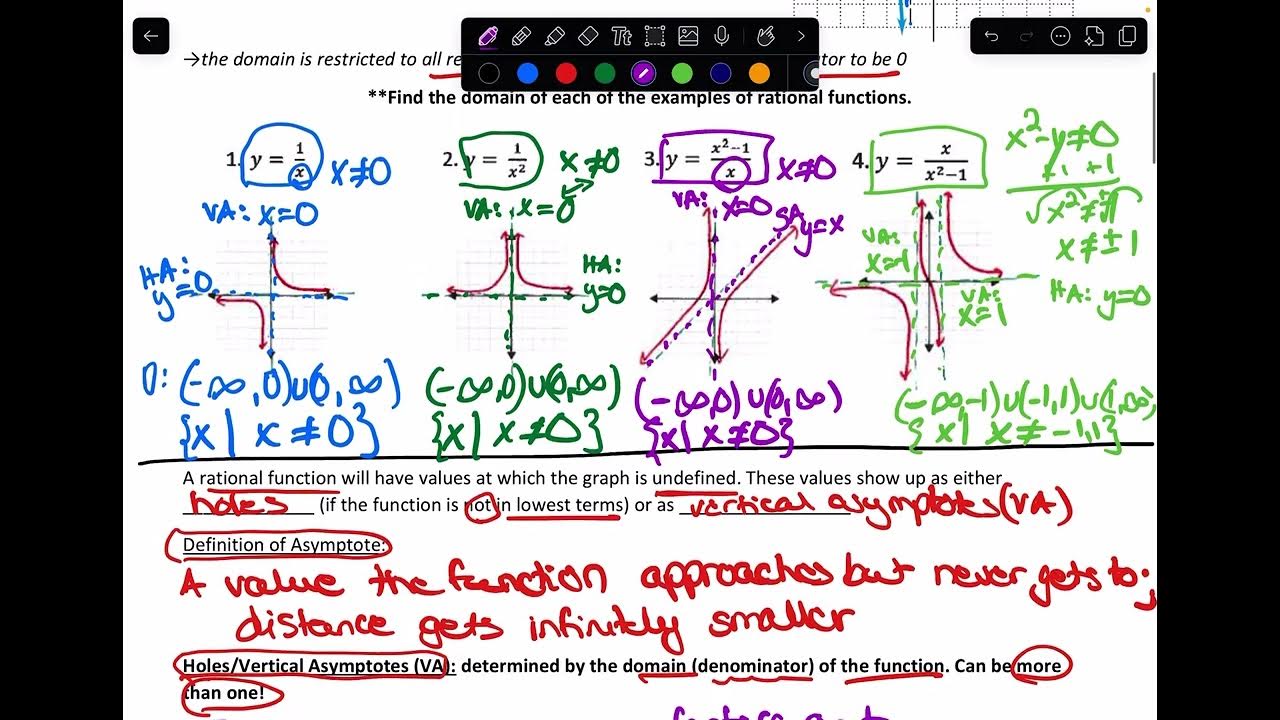 →the domain is restricted to all re
tor to be 0
**Find the domain of each of the examples of rational functions.
1. y = 1/x x≠0
2. y = 1/x² x≠0
3. y = x²−1/x x≠0
4. y = x/x²−1 x²-y≠0
+1 +1
√x²≠±√1
x≠±1
VA: x=0
VA: x=0
VA: x=0
SA y=x
VA: x=-1
HA: y=0
HA: y=0
VA: x=1
HA: y=0
D: (-∞,0)∪(0,∞)
(-∞,0)∪(0,∞)
(-∞,0)∪(0,∞)
(-∞,-1)∪(-1,1)∪(1,∞)
{x| x≠0}
{x| x≠0}
{x| x≠0}
{x| x≠-1,1}
A rational function will have values at which the graph is undefined. These values show up as either
holes (if the function is not in lowest terms) or as vertical asymptotes (VA)
Definition of Asymptote:
A value the function approaches but never gets to;
distance gets infinitely smaller
Holes/Vertical Asymptotes (VA): determined by the domain (denominator) of the function. Can be more
than one!